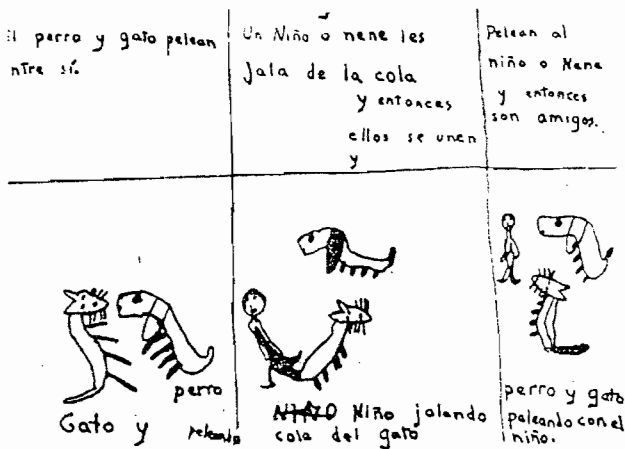 El perro y gato pelean
ntre sí.
Un Niño o nene les
Jala de la cola
y entonces
ellos se unen
y
Pelean al
niño o Nene
y entonces
son amigos.
perro
Gato y peleando
NIÑO Niño jalando
cola del gato
perro y gato
peleando con el
niño.